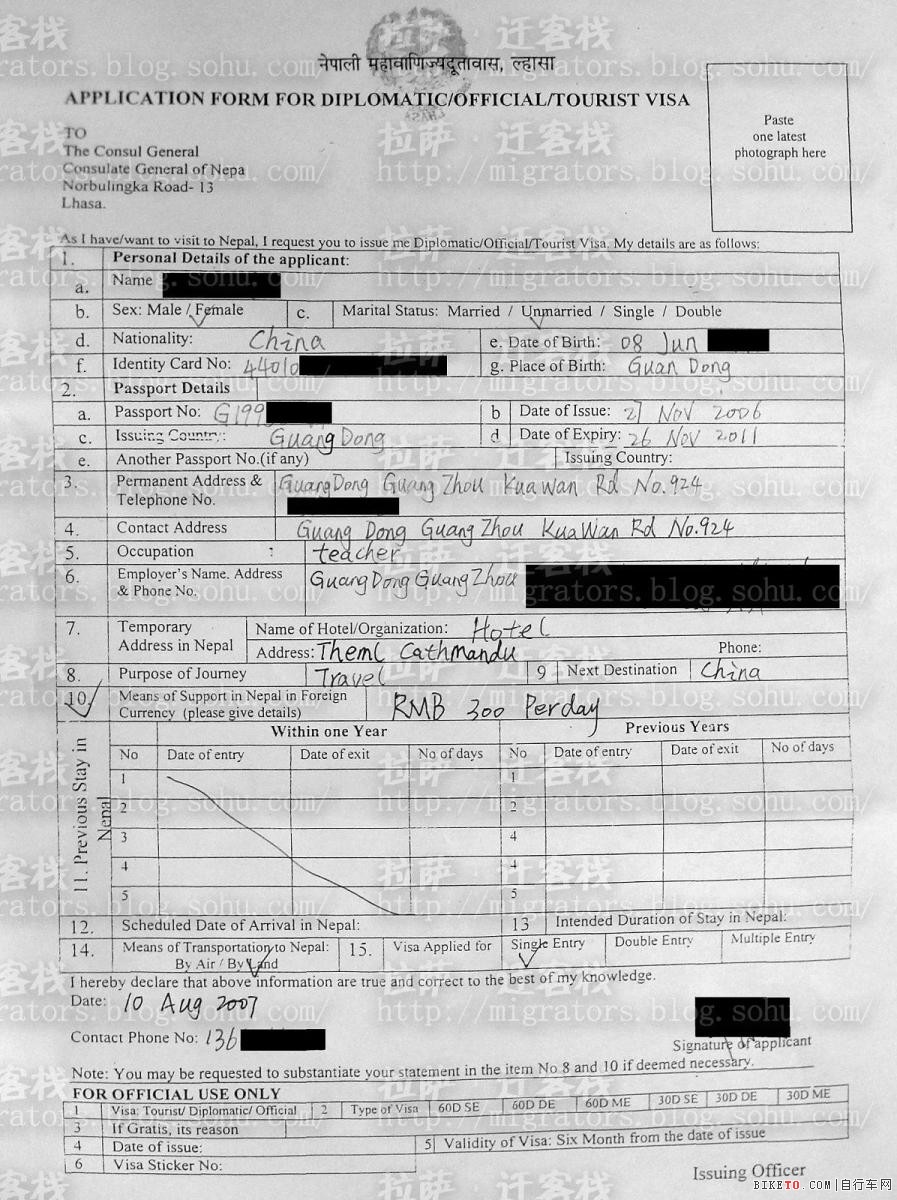 नेपाली महावाणिज्यदूतावास, ल्हासा
APPLICATION FORM FOR DIPLOMATIC/OFFICIAL/TOURIST VISA
Paste
one latest
photograph here
TO
The Consul General
Consulate General of Nepa
Norbulingka Road- 13
Lhasa.
As I have/want to visit to Nepal, I request you to issue me Diplomatic/Official/Tourist Visa. My details are as follows:
1. Personal Details of the applicant:
a. Name
b. Sex: Male / Female c. Marital Status: Married / Unmarried / Single / Double
d. Nationality: China e. Date of Birth: 08 Jun
f. Identity Card No: 44010 g. Place of Birth: Guan Dong
2. Passport Details
a. Passport No: G199 b Date of Issue: 27 Nov 2006
c. Issuing Country: Guang Dong d Date of Expiry: 26 Nov 2011
e. Another Passport No.(if any) Issuing Country:
3. Permanent Address & Telephone No. GuangDong GuangZhou KuaWan Rd No.924
4. Contact Address Guang Dong GuangZhou KuaWan Rd No.924
5. Occupation : teacher
6. Employer's Name. Address & Phone No. GuangDong GuangZhou
7. Temporary Address in Nepal Name of Hotel/Organization: Hotel
Address: Theml Cathmandu Phone:
8. Purpose of Journey Travel 9 Next Destination China
10. Means of Support in Nepal in Foreign Currency (please give details) RMB 300 Perday
11. Previous Stay in Nepal
Within one Year Previous Years
No Date of entry Date of exit No of days No Date of entry Date of exit No of days
1 1
2 2
3 4
4 4
5 5
12. Scheduled Date of Arrival in Nepal: 13 Intended Duration of Stay in Nepal:
14. Means of Transportation to Nepal: By Air / By Land 15. Visa Applied for Single Entry Double Entry Multiple Entry
I hereby declare that above information are true and correct to the best of my knowledge.
Date: 10 Aug 2007
Contact Phone No: 136
Signature of applicant
Note: You may be requested to substantiate your statement in the item No 8 and 10 if deemed necessary.
FOR OFFICIAL USE ONLY
1 Visa: Tourist/ Diplomatic/ Official 2 Type of Visa 60D SE 60D DE 60D ME 30D SE 30D DE 30D ME
3 If Gratis, its reason
4 Date of issue: 5 Validity of Visa: Six Month from the date of issue
6 Visa Sticker No:
Issuing Officer
拉萨·迁客栈
http://migrators.blog.sohu.com/
BIKETO.COM|自行车网